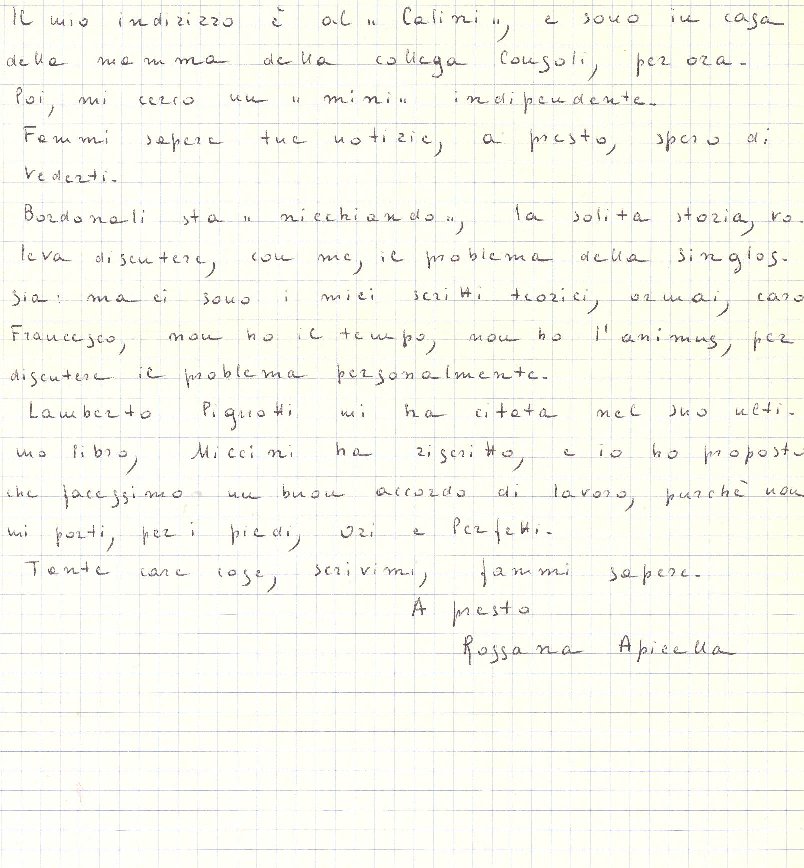 Il mio indirizzo è al " Calini ", e sono in casa
della mamma della collega Consoli, per ora.
Poi, mi cerco un " mini " indipendente.
Fammi sapere tue notizie, a presto, spero di
vederti.
Bordonali sta " nicchiando ", la solita storia, vo-
leva discutere, con me, il problema della singlos-
sia: ma ci sono i miei scritti teorici, ormai, caro
Francesco, non ho il tempo, non ho l'animus, per
discutere il problema personalmente.
Lamberto Pignotti mi ha citata nel suo ulti-
mo libro, Miccini ha riscritto, e io ho proposto
che facessimo un buon accordo di lavoro, purchè non
mi porti, per i piedi, Ori e Perfetti.
Tante care cose, scrivimi, fammi sapere.
A presto
Rossana Apicella